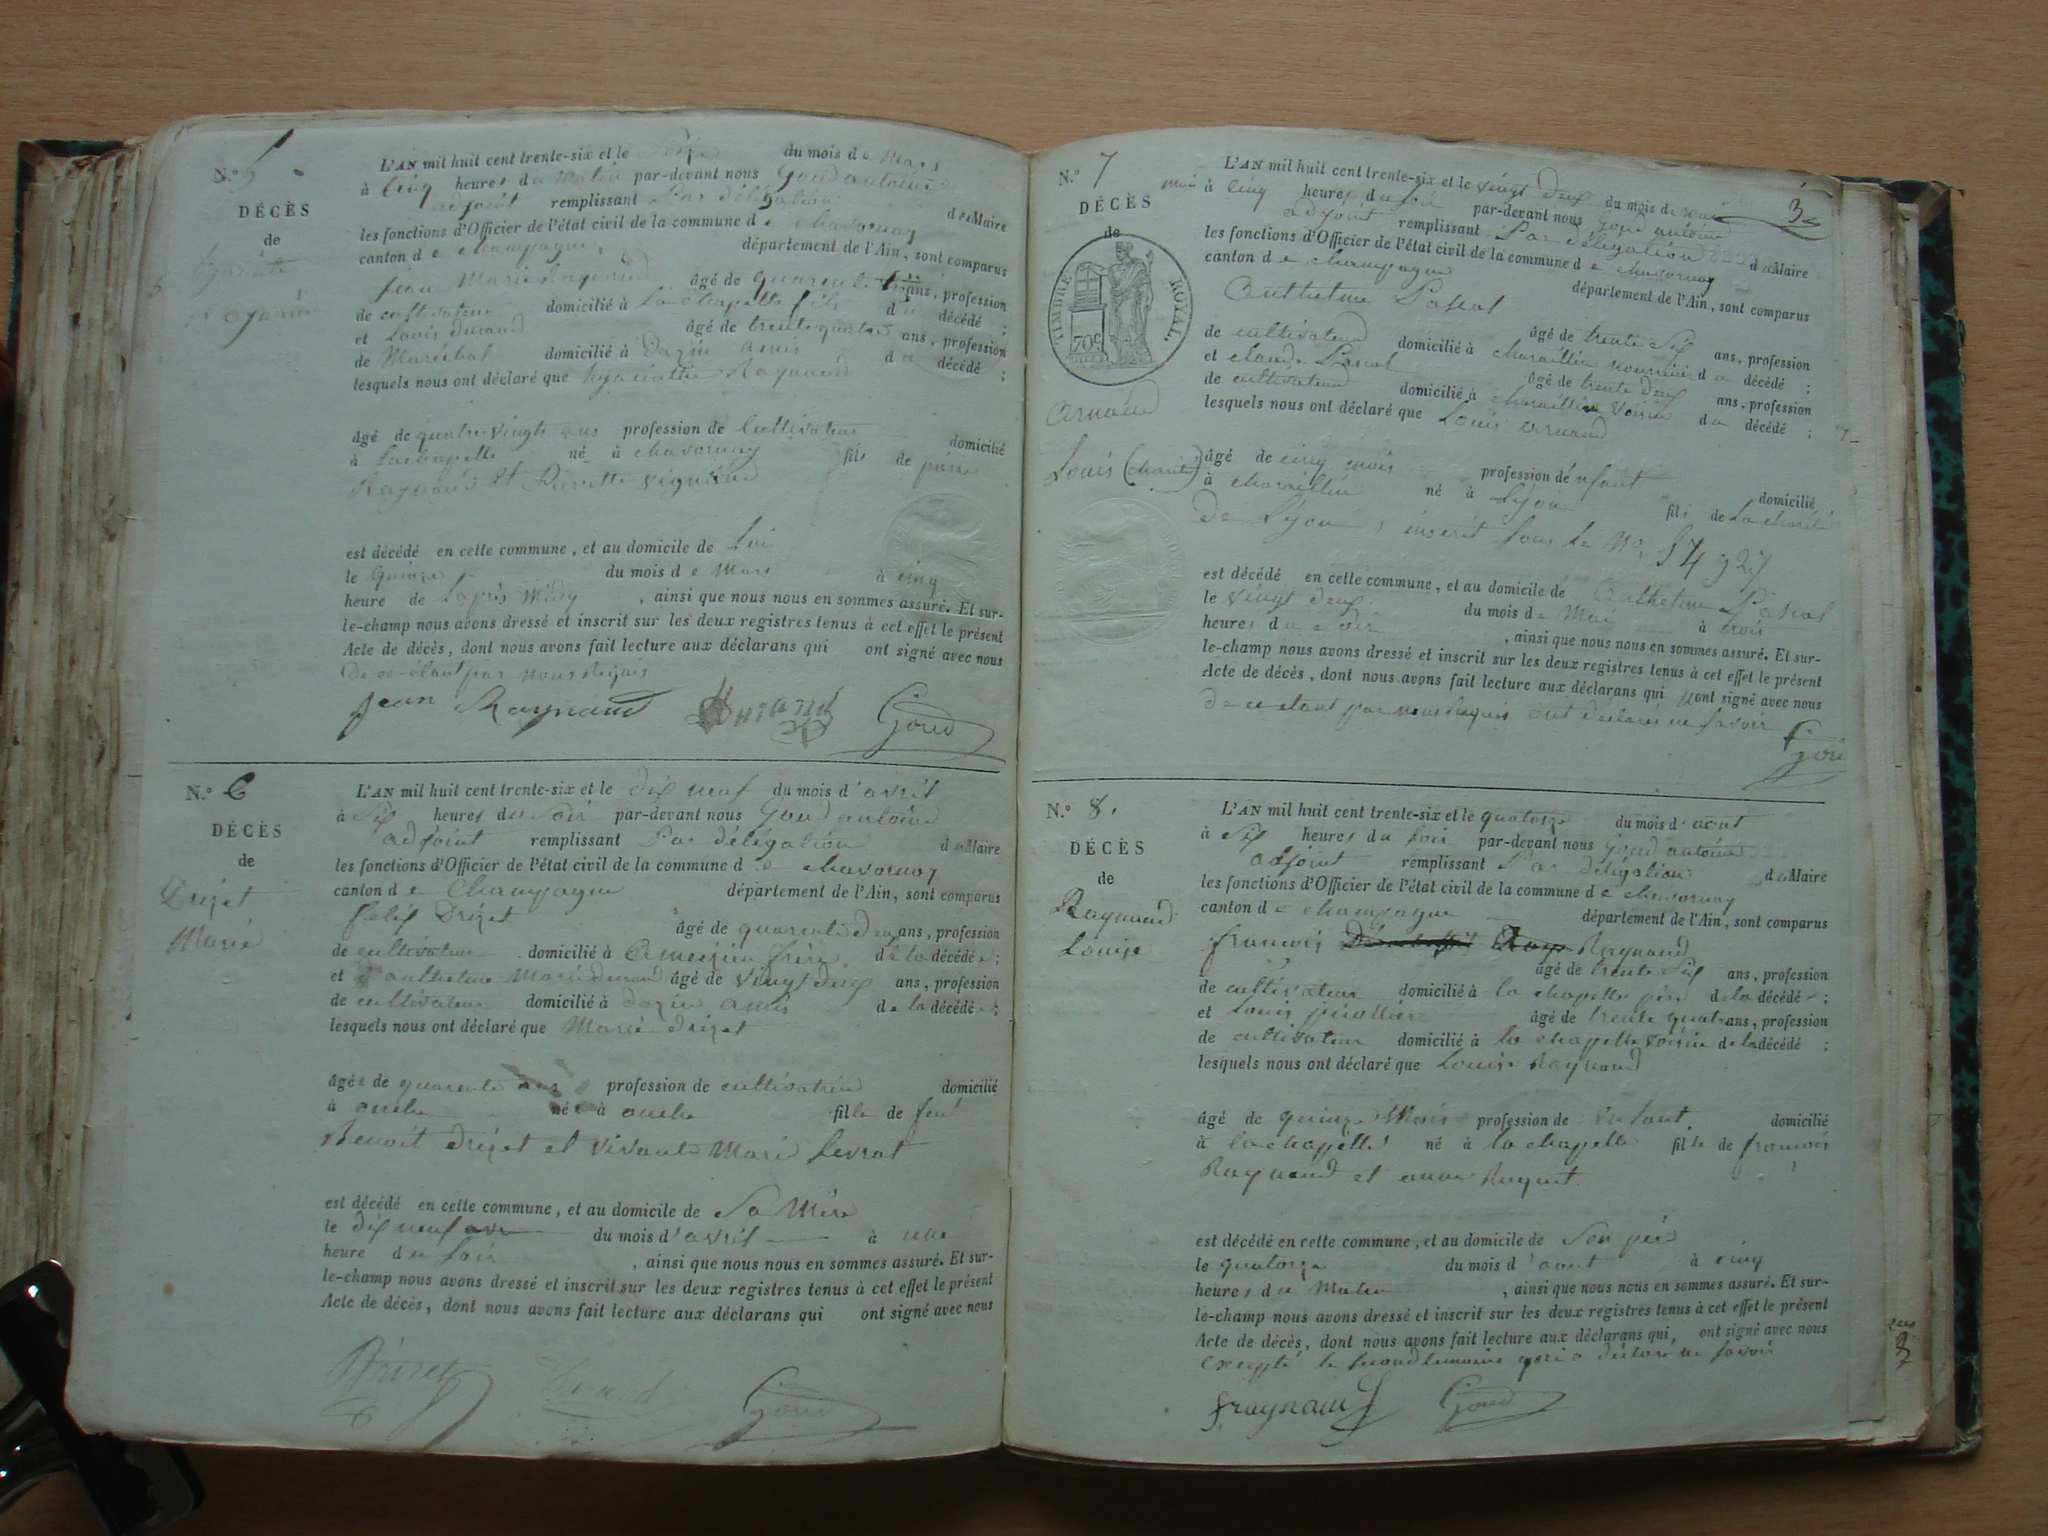 N.º 5
DÉCÈS
de
L'AN mil huit cent trente-six et le Seize du mois de Mars
à Cinq heures du Matin par-devant nous Goud antoine
adjoint remplissant Par délégation du Maire
les fonctions d'Officier de l'état civil de la commune de chavornay
canton de champagne département de l'Ain, sont comparus
jean Marie Raynaud âgé de quarente trois ans, profession
de cultivateur domicilié à La chapelle fils du décédé ;
et Louis durand âgé de trente quatre ans, profession
de Maréchal domicilié à Dazin amis du décédé ;
lesquels nous ont déclaré que hyacinthe Raynaud
âgé de quatre vingts ans profession de Cultivateur domicilié
à Lachapelle né à chavornay fils de pierre
Raynaud et Pierrette
est décédé en cette commune, et au domicile de Lui
le Quinze du mois de Mars à cinq
heure de Laprès Midy, ainsi que nous nous en sommes assuré. Et sur-
le-champ nous avons dressé et inscrit sur les deux registres tenus à cet effet le présent
Acte de décès, dont nous avons fait lecture aux déclarans qui ont signé avec nous
De ce étant par nous Requis
jean Raynaud Durand Goud
N.º 6
DÉCÈS
de
Drizet
Marie
L'AN mil huit cent trente-six et le dix neuf du mois d'avril
à Six heures du Soir par-devant nous Goud antoine
adjoint remplissant Par délégation du Maire
les fonctions d'Officier de l'état civil de la commune de chavornay
canton de Champagne département de l'Ain, sont comparus
felix Drizet âgé de quarente deux ans, profession
de cultivateur domicilié à frère de la décédée ;
et anthelme Marie durand âgé de vingt deux ans, profession
de cultivateur domicilié à dazin amis de la décédée ;
lesquels nous ont déclaré que Marie drizet
âgée de quarente ans profession de cultivatrice domicilié
à ouche née à ouche fille de feu
Benoit drizet et vivante Marie Levrat
est décédé en cette commune, et au domicile de Sa Mère
le dix neuf du mois d'avril à une
heure du Soir, ainsi que nous nous en sommes assuré. Et sur-
le-champ nous avons dressé et inscrit sur les deux registres tenus à cet effet le présent
Acte de décès, dont nous avons fait lecture aux déclarans qui ont signé avec nous
Drizet Durand Goud
3
N.º 7
DÉCÈS
de
TIMBRE ROYAL
70c
Arnaud
Louis (charité)
L'AN mil huit cent trente-six et le vingt deux du mois de mai
à cinq heures du soir par-devant nous Goud antoine
adjoint remplissant Par délégation du Maire
les fonctions d'Officier de l'état civil de la commune de chavornay
canton de champagne département de l'Ain, sont comparus
Anthelme Pascal âgé de trente Six ans, profession
de cultivateur domicilié à charaillin nourricier du décédé ;
et claude Pascal âgé de trente deux ans, profession
de cultivateur domicilié à charaillin voisin du décédé ;
lesquels nous ont déclaré que Louis arnaud
âgé de cinq mois profession d'enfant domicilié
à charaillin né à Lyon fils de La charité
De Lyon, inscrit Sous Le No
est décédé en cette commune, et au domicile de Anthelme Pascal
le vingt deux du mois de Mai à trois
heures du Soir, ainsi que nous nous en sommes assuré. Et sur-
le-champ nous avons dressé et inscrit sur les deux registres tenus à cet effet le présent
Acte de décès, dont nous avons fait lecture aux déclarans qui n'ont signé avec nous
De ce étant par nous Requis ont déclaré ne savoir
Goud
N.º 8.
DÉCÈS
de
Raynaud
Louise
L'AN mil huit cent trente-six et le quatorze du mois d'aout
à Six heures du Soir par-devant nous Goud antoine
adjoint remplissant Par délégation du Maire
les fonctions d'Officier de l'état civil de la commune de chavornay
canton de champagne département de l'Ain, sont comparus
francois Raynaud âgé de trente Six ans, profession
de cultivateur domicilié à la chapelle père de la décédée ;
et Louis âgé de trente quatre ans, profession
de cultivateur domicilié à la chapelle voisin de la décédé ;
lesquels nous ont déclaré que Louise Raynaud
âgé de quinze Mois profession de Enfant domicilié
à lachapelle né à la chapelle fille de francois
Raynaud et anne Ruguet
est décédé en cette commune, et au domicile de Son père
le quatorze du mois d'aout à cinq
heures du Matin, ainsi que nous nous en sommes assuré. Et sur-
le-champ nous avons dressé et inscrit sur les deux registres tenus à cet effet le présent
Acte de décès, dont nous avons fait lecture aux déclarans qui, ont signé avec nous
Excepté le Second temoins qui a déclaré ne Savoir
fraynaud Goud